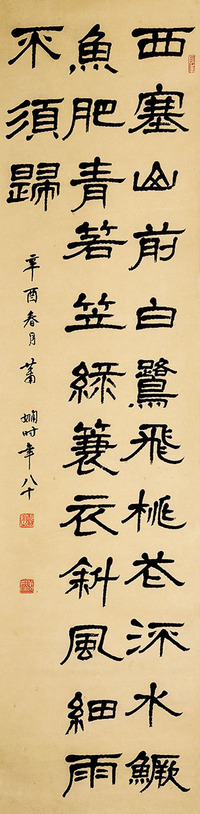 西塞山前白鷺飛桃花流水鱖
魚肥青箬笠綠簑衣斜風細雨
不須歸
辛酉春月蕭嫻時年八十